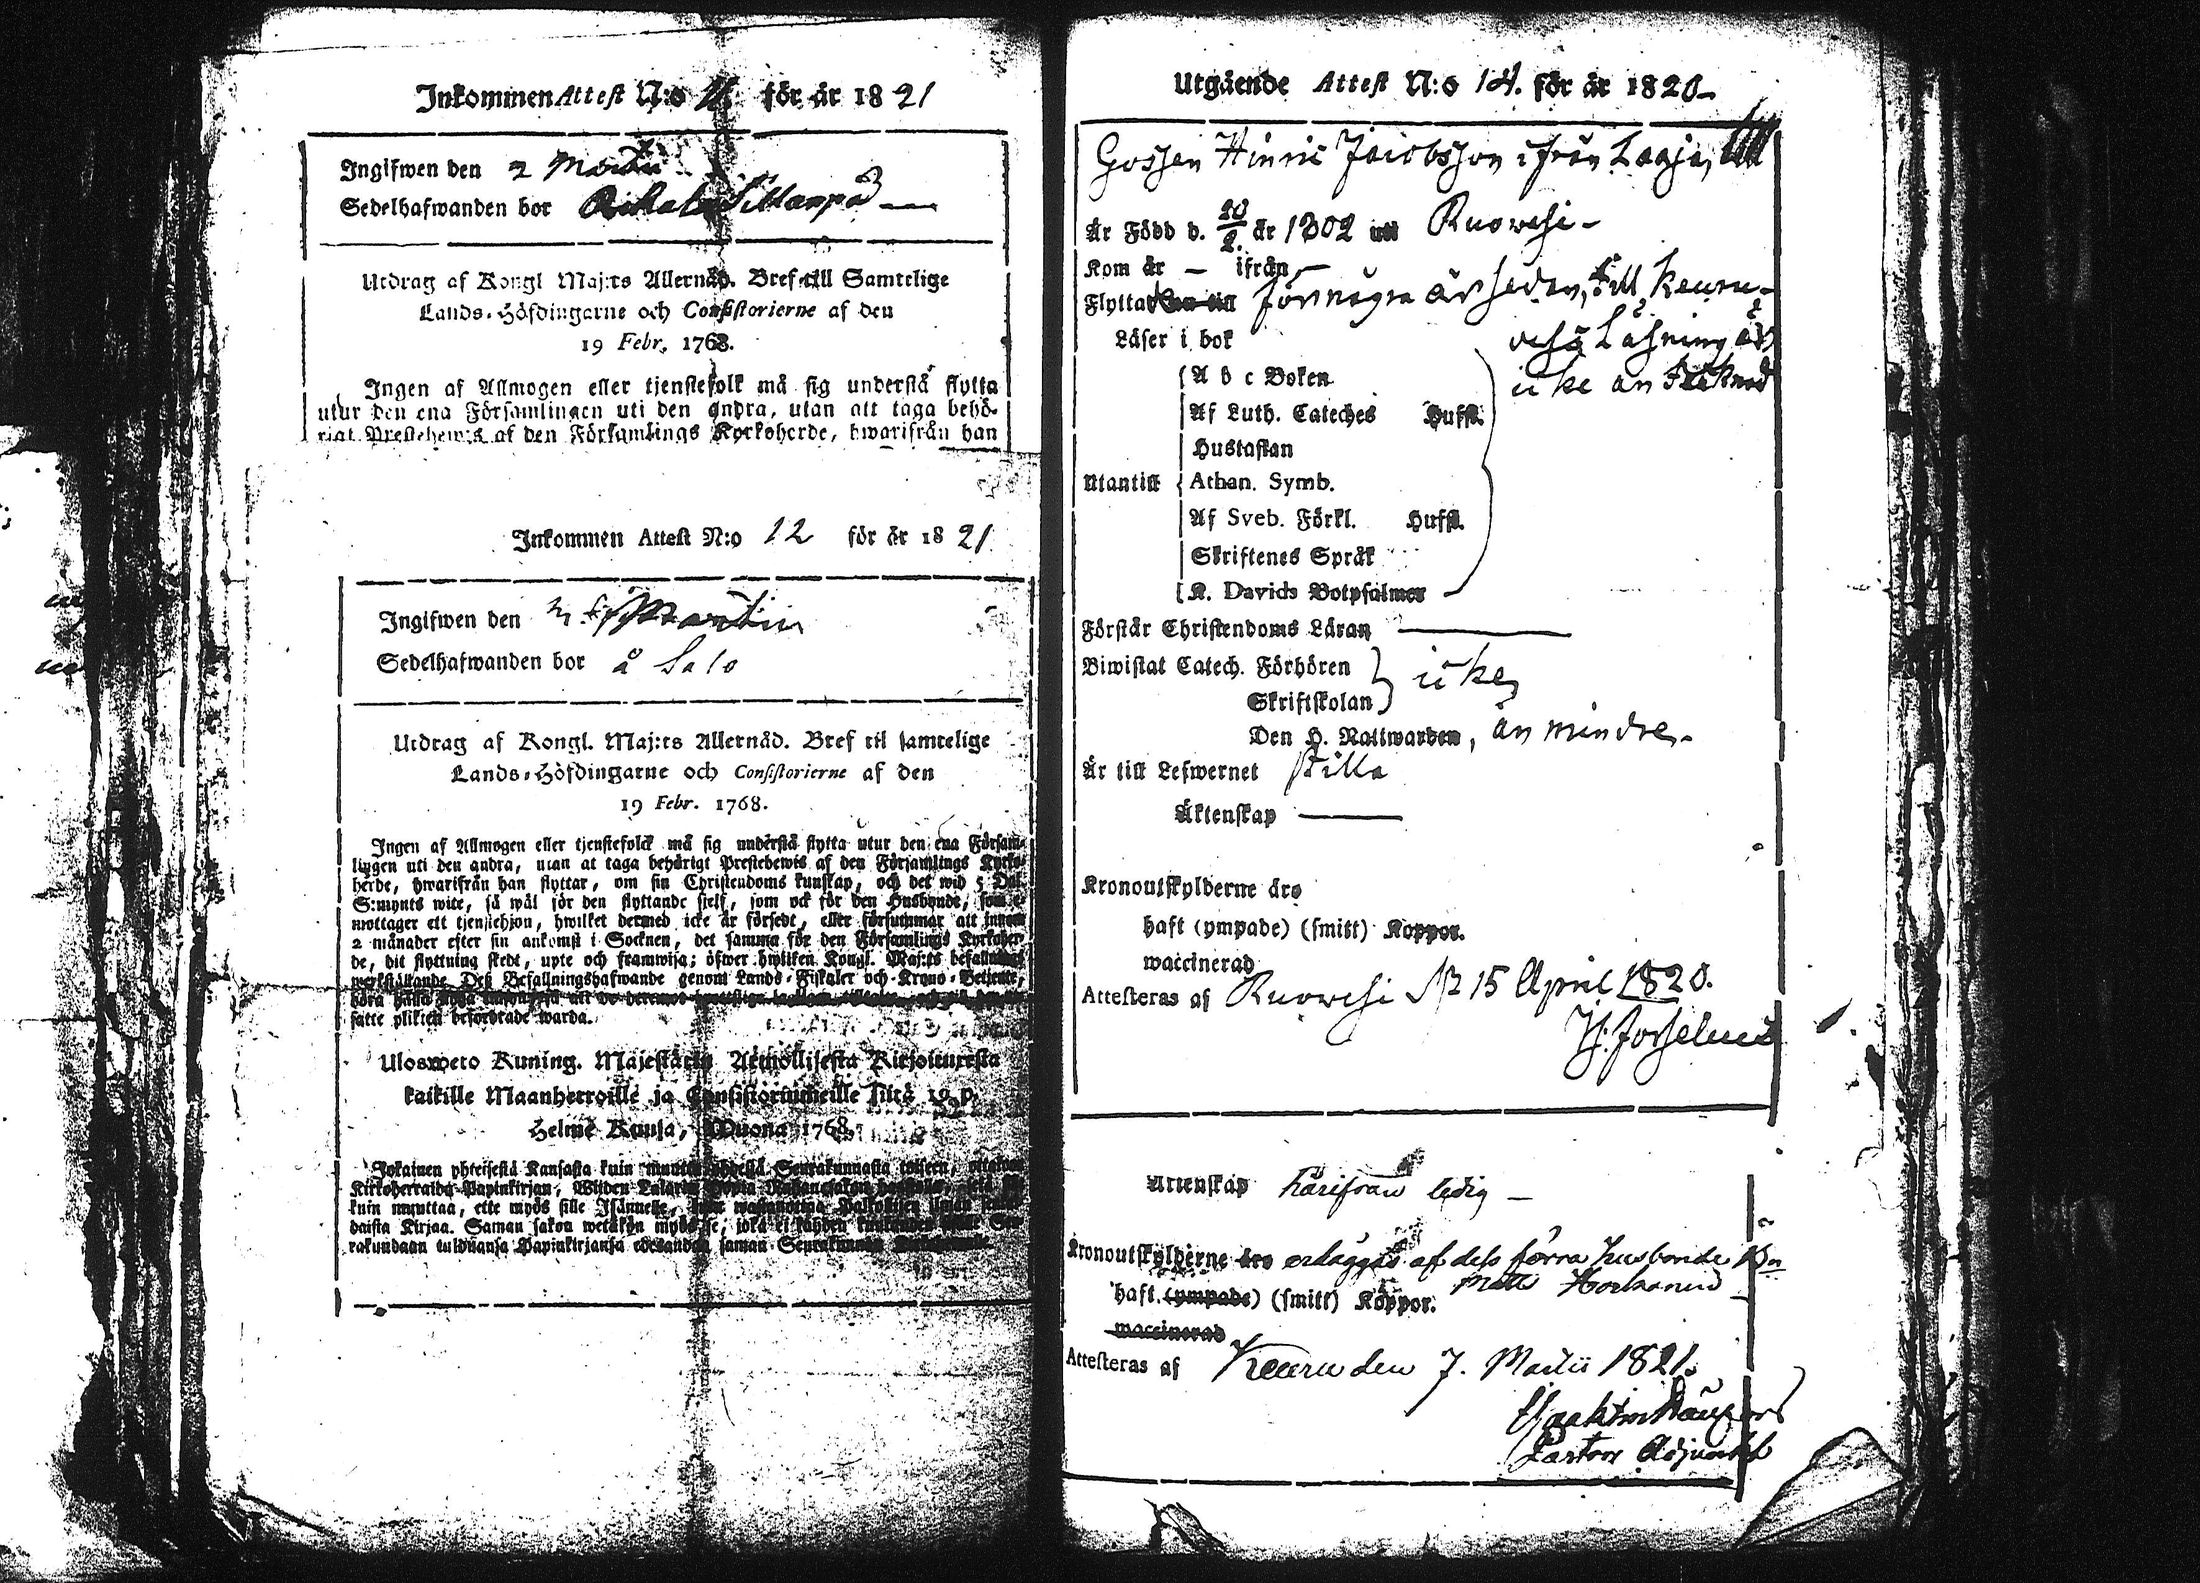 Inkommen Attest N:o 11. för år 1821
Ingifwen den 2 Martii
Sedelhafwanden bor Sillanpä
Utdrag af Kongl Maj:ts Allernåd. Bref till Samtelige
Lands-Höfdingarne och Consistorierne af den
19 Febr. 1768.
Ingen af Allmogen eller tjenstefolk må sig understå flytta
utur den ena Församlingen uti den andra, utan att taga behö-
rigt Prestebewis af den Församlings Kyrkoherde, hwarifrån han
Inkommen Attest N:o 12 för år 1821
Ingifwen den Martii
Sedelhafwanden bor å Salo
Utdrag af Kongl. Maj:ts Allernåd. Bref til samtelige
Lands-Höfdingarne och Consistorierne af den
19 Febr. 1768.
Ingen af Allmogen eller tjenstefolck må sig understå flytta utur den ena Församl-
lingen uti den andra, utan at taga behörigt Prestebewis af den Församlings Kyrko-
herde, hwarifrån han flyttar, om sin Christendoms kunskap, och det wid 5 Dal.
S:mynts wite, så wäl för den flyttande sjelf, som ock för den Husbonde, som e-
mottager ett tjenstehjon, hwilket dermed icke är försedt, eller försummar att innom
2 månader efter sin ankomst i Socknen, det samma för den Församlings Kyrkoher-
de, dit flyttning skedt, upte och framwisa; öfwer hwilken Kongl. Maj:ts befallnings
werkställande Deß Befallningshafwande genom Lands-Fiskaler och Krono-Betjente,
höra hålla
satte plikten befordrade warda.
Ulosweto Kuning. Majestätin Armollisesta Kirjoituxesta
kaikille Maanherroille ja Consistoriumeille siitä 19 p.
Helme Kuusa, Wuona 1768.
Jokainen yhteisestä Kansasta kuin muutta yhdestä Seurakunnasta toiseen, ottakan
Kirkoherralda Papinkirjan, Wijden
kuin muuttaa, ette myös sille Isännelle,
daista Kirjaa. Saman sakon wetäkön myös se, joka ei kahden
rakundaan tulduansa Papinkirjansa edesanda saman Seurakunnan
Utgående Attest N:o 14. för år 1820
Gossen Hinric Jacobsson ifrån Laaja, till
Är Född d. 20/2. år 1802 uti Ruowesi -
Kom år - ifrån -
Flyttar för några år sedan, till Keuru-
Läser i bok Läsning är
icke antecknad
A b c Boken
Af Luth. Cateches Hufst.
Hustaflan
Utantill Athan. Symb.
Af Sveb. Förkl. Hufst.
Skriftenes Språk
K. Davids Botpsalmer
Förstår Christendoms Läran
Biwistat Catech. Förhören
Skriftskolan icke,
Den H. Nattwarden, än mindre.
Är till Lefwernet stilla
Äktenskap
Kronoutskylderne äro
haft (ympade) (smitt) Koppor.
waccinerad
Attesteras af Ruowesi 15 April 1820.
Äktenskap härifrån ledig -
Kronoutskylderne äro erläggas af dess förra husbonde
Matts
haft (ympade) (smitt) Koppor.
waccinerad
Attesteras af Keuru den 7. Martii 1821.
Pastors Adjunct